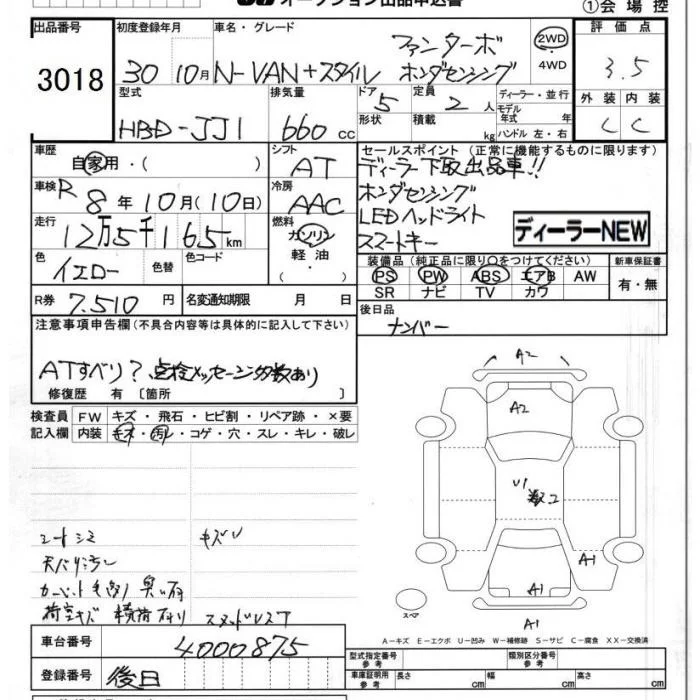 オークション出品申込書
①会場控
出品番号 初度登録年月 車名・グレード 評価点
3018 30 10月 N-VAN+スタイル ファン ターボ ホンダセンシング 2WD 4WD 3.5
型式 排気量 ドア 5 定員 2 人 ディーラー・並行 外装 内装
HBD-JJ1 660 cc 形状 積載 kg モデル年式 年 ハンドル 左・右 C C
車歴 シフト セールスポイント (正常に機能するものに限ります)
自家用・( ) AT ディーラー下取出品車!!
車検 R 8年 10月(10日) 冷房 AAC ホンダセンシング
走行 12万5千165km 燃料 ガソリン 軽油 ・( ) LEDヘッドライト
スマートキー ディーラーNEW
色 イエロー 色替 色コード
装備品(純正品に限り○をつけてください) 新車保証書
PS PW ABS エアB AW 有・無
SR ナビ TV カワ
R券 7.510 円 名変通知期限 月 日
後日品
ナンバー
注意事項申告欄(不具合内容等は具体的に記入して下さい)
ATすべり? 点検メッセージ多数あり
修復歴 有〔箇所 〕
検査員 FW キズ・飛石・ヒビ割・リペア跡・×要
記入欄 内装 キズ・汚レ・コゲ・穴・スレ・キレ・破レ
A2
A2
U1
A1
A1
A1
シートシミ キズU
天バリ汚レ
荷室キズ
スペア
A-キズ E-エクボ U-凹み W-補修跡 S-サビ C-腐食 XX-交換済
車台番号 4000875
型式指定番号 参考 類別区分番号 参考
登録番号 後日
車庫証明用 参考 長さ cm 幅 cm 高さ cm